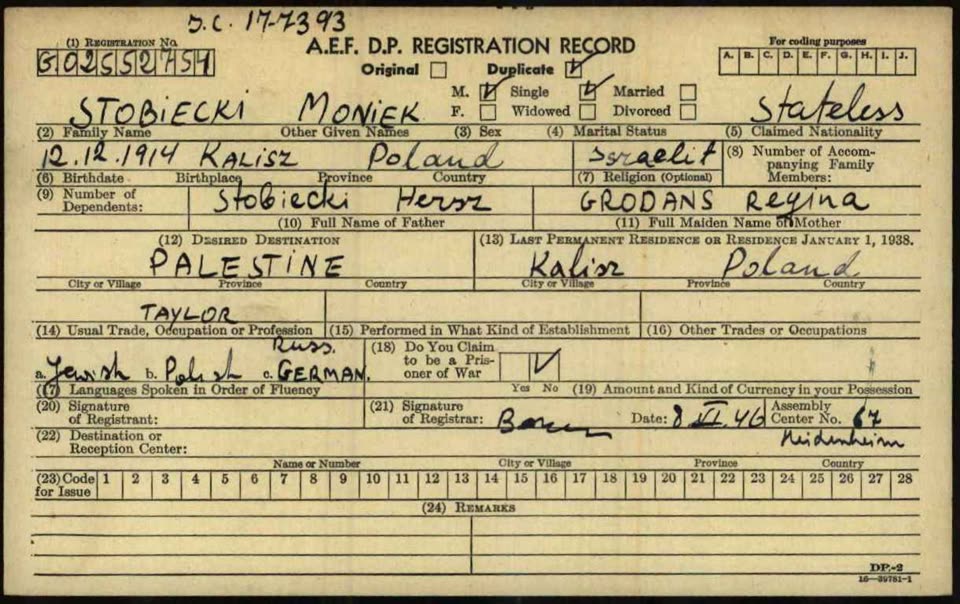 J.C. 17-7393
(1) REGISTRATION NO.
G02552754
A.E.F. D.P. REGISTRATION RECORD
Original Duplicate
For coding purposes
A. B. C. D. E. F. G. H. I. J.
M. Single Married
F. Widowed Divorced
STOBIECKI MONIEK Stateless
(2) Family Name Other Given Names (3) Sex (4) Marital Status (5) Claimed Nationality
12.12.1914 KALISZ Poland Israelit (8) Number of Accompanying Family Members:
(6) Birthdate Birthplace Province Country (7) Religion (Optional)
(9) Number of Dependents: Stobiecki Hersz GRODANS Regina
(10) Full Name of Father (11) Full Maiden Name of Mother
(12) DESIRED DESTINATION (13) LAST PERMANENT RESIDENCE OR RESIDENCE JANUARY 1, 1938.
PALESTINE Kalisz Poland
City or Village Province Country City or Village Province Country
TAYLOR
(14) Usual Trade, Occupation or Profession (15) Performed in What Kind of Establishment (16) Other Trades or Occupations
Russ.
a. Jewish b. Polish c. GERMAN. (18) Do You Claim to be a Prisoner of War
Yes No
(17) Languages Spoken in Order of Fluency (19) Amount and Kind of Currency in your Possession
(20) Signature of Registrant: (21) Signature of Registrar: Date: 8 VI. 46 Assembly Center No. 67
Heidenheim
(22) Destination or Reception Center:
Name or Number City or Village Province Country
(23) Code for Issue 1 2 3 4 5 6 7 8 9 10 11 12 13 14 15 16 17 18 19 20 21 22 23 24 25 26 27 28
(24) REMARKS
DP-2
16-39781-1